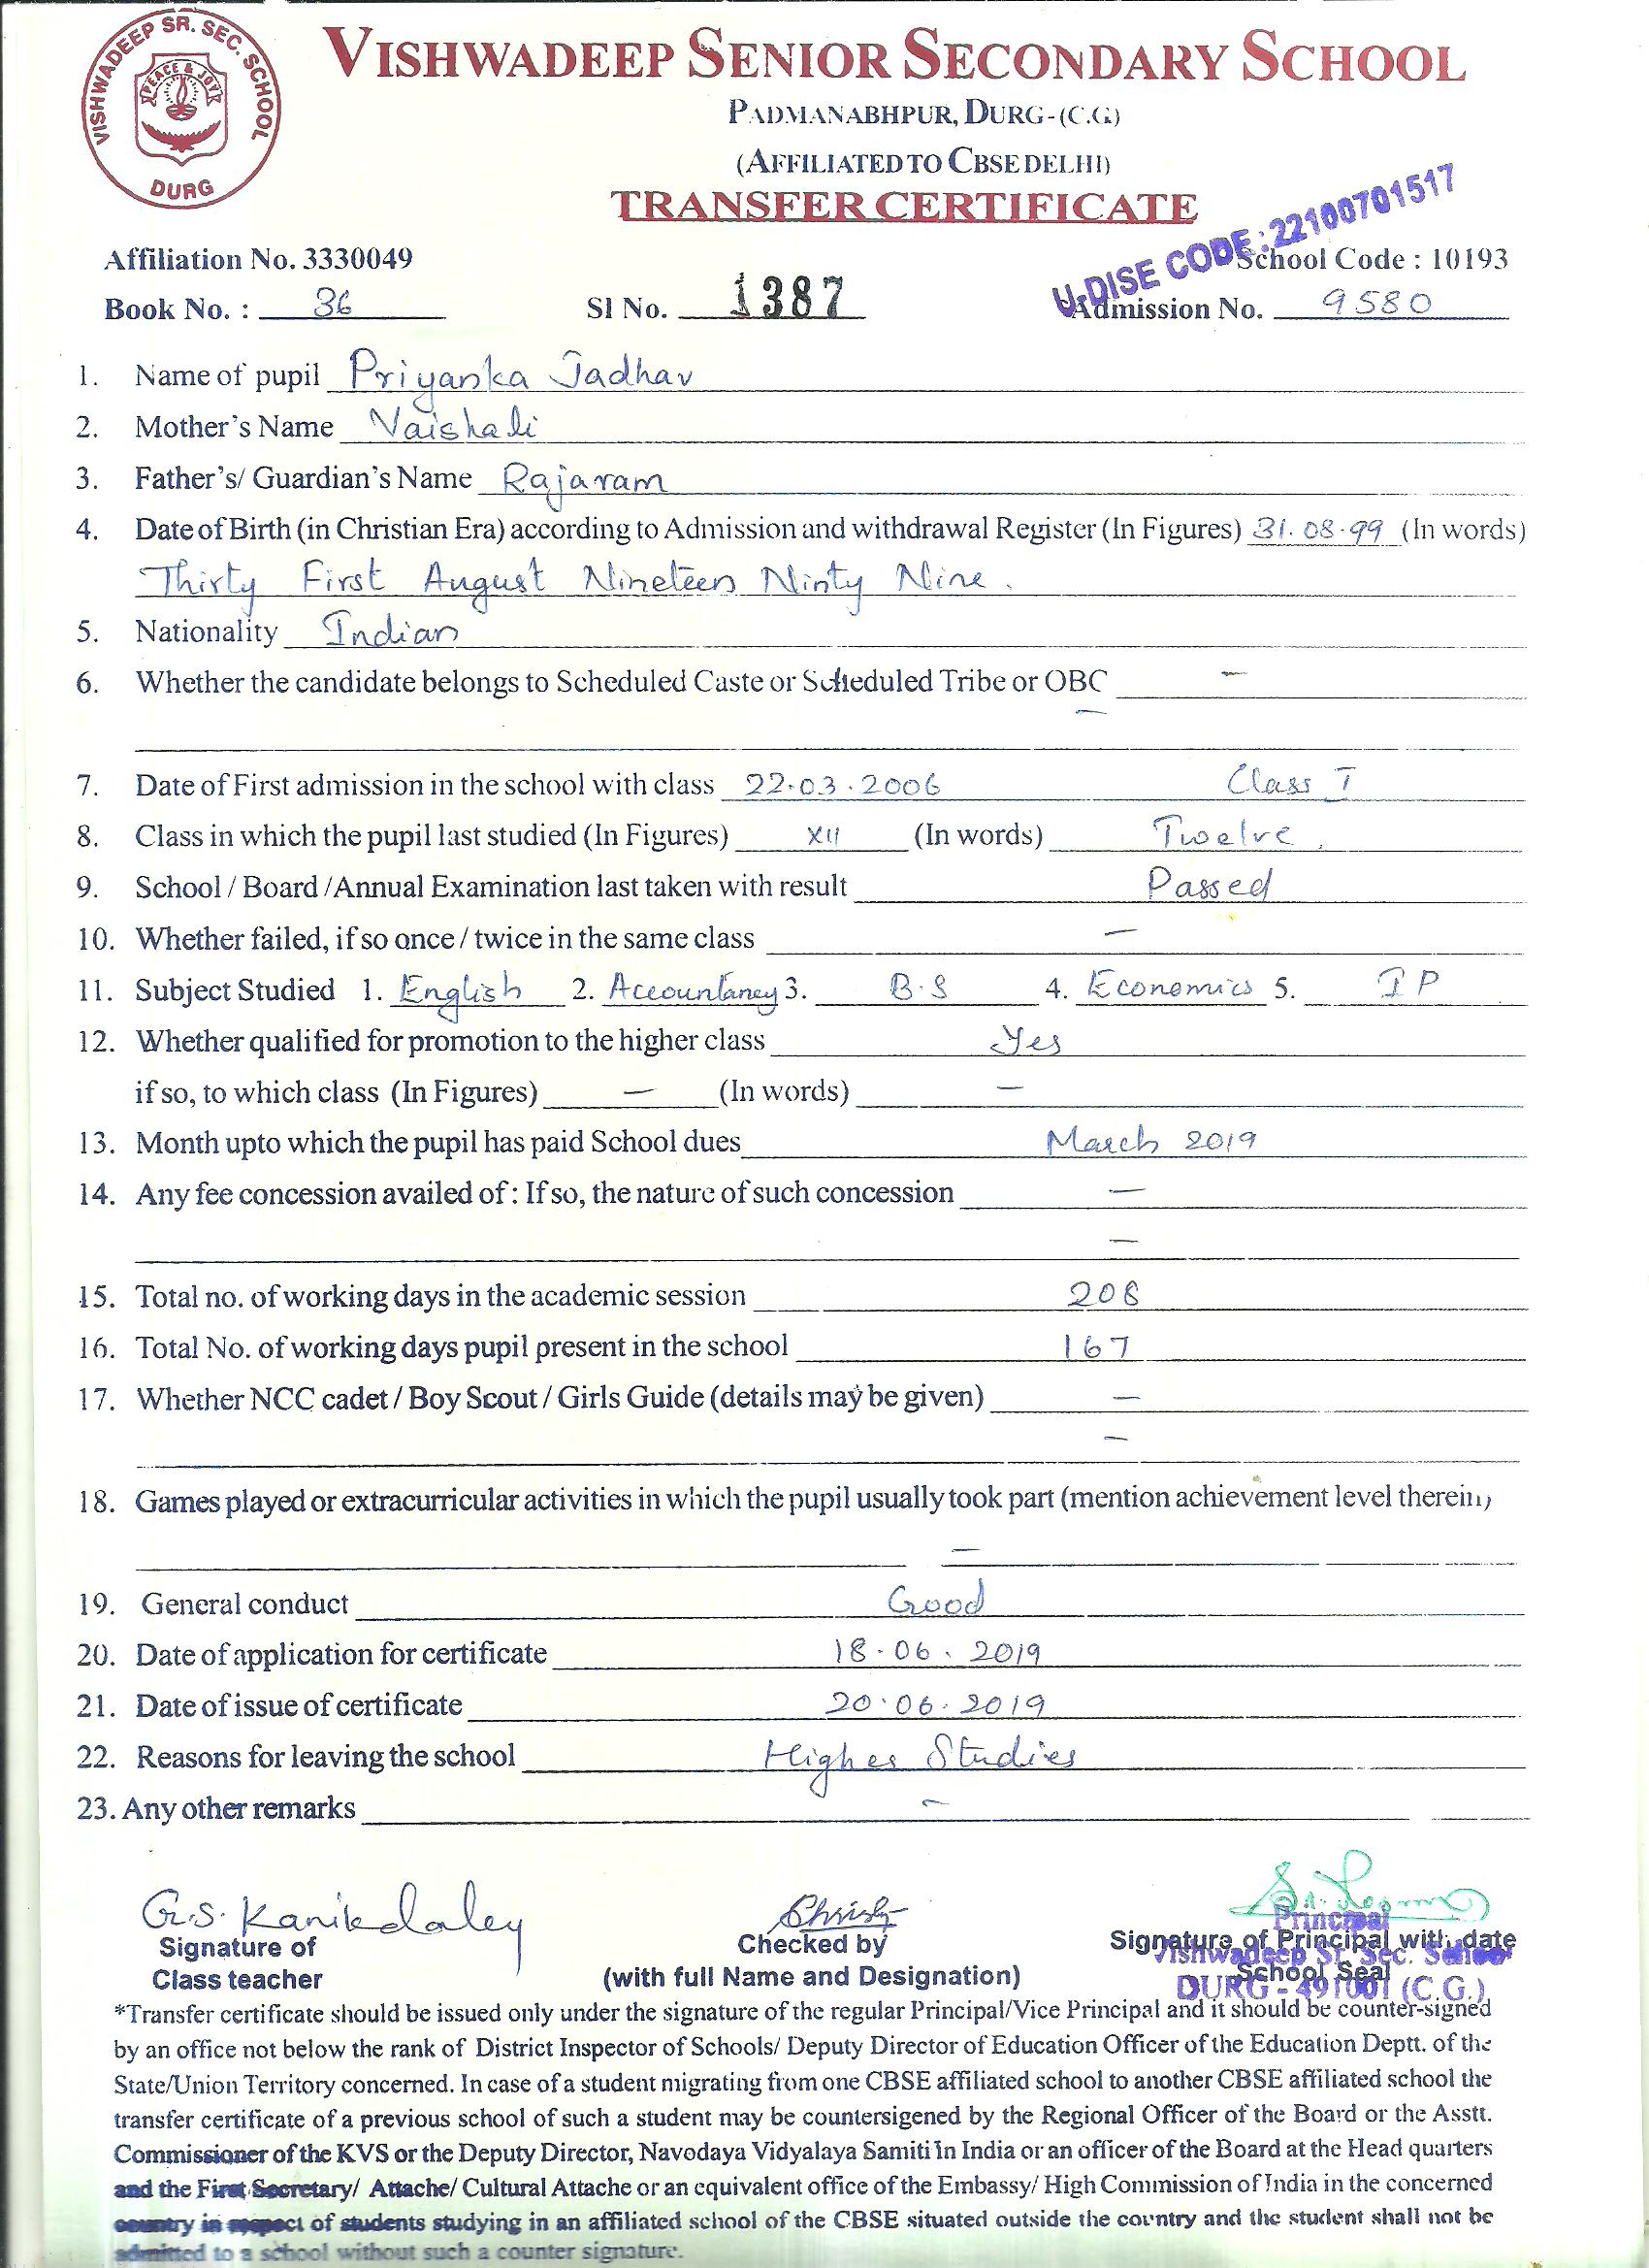 VISHWADEEP SR. SEC. SCHOOL
PEACE & JOY
DURG
VISHWADEEP SENIOR SECONDARY SCHOOL
PADMANABHPUR, DURG-(C.G.)
(AFFILIATED TO CBSE DELHI)
TRANSFER CERTIFICATE
U-DISE CODE: 22100701517
Affiliation No. 3330049 School Code : 10193
Book No. : 36 Sl No. 1387 Admission No. 9580
1. Name of pupil Priyanka Jadhav
2. Mother's Name Vaishali
3. Father's/ Guardian's Name Rajaram
4. Date of Birth (in Christian Era) according to Admission and withdrawal Register (In Figures) 31.08.99 (In words)
Thirty First August Nineteen Ninty Nine.
5. Nationality Indian
6. Whether the candidate belongs to Scheduled Caste or Scheduled Tribe or OBC —
—
7. Date of First admission in the school with class 22.03.2006 Class I
8. Class in which the pupil last studied (In Figures) XII (In words) Twelve
9. School / Board /Annual Examination last taken with result Passed
10. Whether failed, if so once / twice in the same class —
11. Subject Studied 1. English 2. Accountancy 3. B.S 4. Economics 5. IP
12. Whether qualified for promotion to the higher class Yes
if so, to which class (In Figures) — (In words) —
13. Month upto which the pupil has paid School dues March 2019
14. Any fee concession availed of : If so, the nature of such concession —
—
15. Total no. of working days in the academic session 208
16. Total No. of working days pupil present in the school 167
17. Whether NCC cadet / Boy Scout / Girls Guide (details may be given) —
—
18. Games played or extracurricular activities in which the pupil usually took part (mention achievement level therein)
—
19. General conduct Good
20. Date of application for certificate 18.06.2019
21. Date of issue of certificate 20.06.2019
22. Reasons for leaving the school Higher Studies
23. Any other remarks —
G.S. Christy
Signature of Class teacher
Checked by
(with full Name and Designation)
Signature of Principal with date
School Seal
Principal
Vishwadeep Sr. Sec. School
DURG - 491001 (C.G.)
*Transfer certificate should be issued only under the signature of the regular Principal/Vice Principal and it should be counter-signed
by an office not below the rank of District Inspector of Schools/ Deputy Director of Education Officer of the Education Deptt. of the
State/Union Territory concerned. In case of a student migrating from one CBSE affiliated school to another CBSE affiliated school the
transfer certificate of a previous school of such a student may be countersigened by the Regional Officer of the Board or the Asstt.
Commissioner of the KVS or the Deputy Director, Navodaya Vidyalaya Samiti in India or an officer of the Board at the Head quarters
and the First Secretary/ Attache/ Cultural Attache or an equivalent office of the Embassy/ High Commission of India in the concerned
country in respect of students studying in an affiliated school of the CBSE situated outside the country and the student shall not be
admitted to a school without such a counter signature.